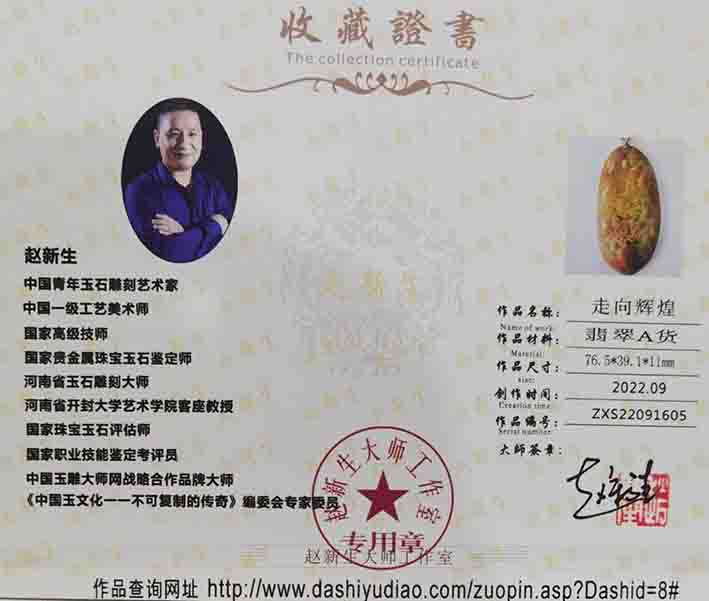 收藏證書
The collection certificate
赵新生
中国青年玉石雕刻艺术家
中国一级工艺美术师
国家高级技师
国家贵金属珠宝玉石鉴定师
河南省玉石雕刻大师
河南省开封大学艺术学院客座教授
国家珠宝玉石评估师
国家职业技能鉴定考评员
中国玉雕大师网战略合作品牌大师
《中国玉文化一一不可复制的传奇》编委会专家委员
作品名称：
走向辉煌
Name of work:
作品材料：
翡翠A货
Material:
作品尺寸：
76.5*39.1*11mm
size:
创作时间：
2022.09
Creation time:
作品编号：
ZXS22091605
Serial number:
大师签章：
赵新生大师工作室
专用章
赵新生大师工作室
作品查询网址 http://www.dashiyudiao.com/zuopin.asp?Dashid=8#